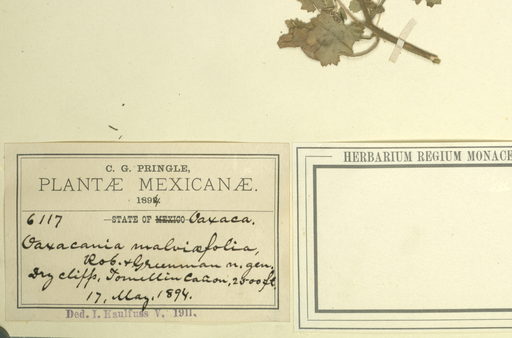 C. G. PRINGLE,
PLANTÆ MEXICANÆ.
1894
6117 —STATE OF MEXICO Oaxaca.
Oaxacania malvæfolia,
Rob. & Greenman n. gen.
Dry cliffs, Tomellin Cañon, 2500 ft.
17, May, 1894.
Ded. I. Kaulfuss V. 1911.
HERBARIUM REGIUM MONACE